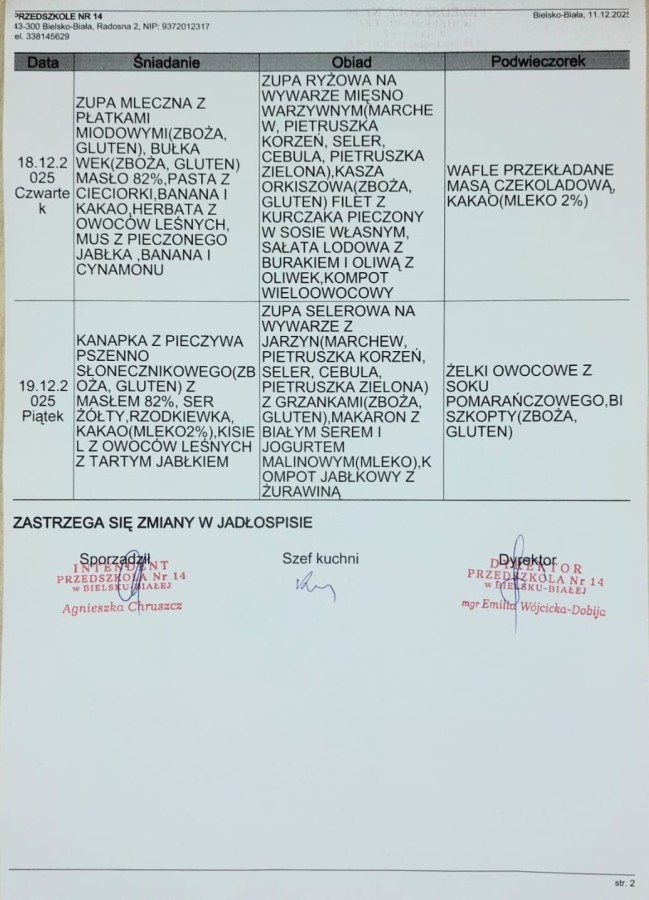 PRZEDSZKOLE NR 14
43-300 Bielsko-Biała, Radosna 2, NIP: 9372012317
el. 338145629
Bielsko-Biała, 11.12.2025
Data Śniadanie Obiad Podwieczorek
18.12.2
025
Czwarte
k
ZUPA MLECZNA Z
PŁATKAMI
MIODOWYMI(ZBOŻA,
GLUTEN), BUŁKA
WEK(ZBOŻA, GLUTEN)
MASŁO 82%,PASTA Z
CIECIORKI,BANANA I
KAKAO,HERBATA Z
OWOCÓW LEŚNYCH,
MUS Z PIECZONEGO
JABŁKA ,BANANA I
CYNAMONU
ZUPA RYŻOWA NA
WYWARZE MIĘSNO
WARZYWNYM(MARCHE
W, PIETRUSZKA
KORZEŃ, SELER,
CEBULA, PIETRUSZKA
ZIELONA),KASZA
ORKISZOWA(ZBOŻA,
GLUTEN) FILET Z
KURCZAKA PIECZONY
W SOSIE WŁASNYM,
SAŁATA LODOWA Z
BURAKIEM I OLIWĄ Z
OLIWEK,KOMPOT
WIELOOWOCOWY
WAFLE PRZEKŁADANE
MASĄ CZEKOLADOWĄ,
KAKAO(MLEKO 2%)
19.12.2
025
Piątek
KANAPKA Z PIECZYWA
PSZENNO
SŁONECZNIKOWEGO(ZB
OŻA, GLUTEN) Z
MASŁEM 82%, SER
ŻÓŁTY,RZODKIEWKA,
KAKAO(MLEKO2%),KISIE
L Z OWOCÓW LEŚNYCH
Z TARTYM JABŁKIEM
ZUPA SELEROWA NA
WYWARZE Z
JARZYN(MARCHEW,
PIETRUSZKA KORZEŃ,
SELER, CEBULA,
PIETRUSZKA ZIELONA)
Z GRZANKAMI(ZBOŻA,
GLUTEN),MAKARON Z
BIAŁYM SEREM I
JOGURTEM
MALINOWYM(MLEKO),K
OMPOT JABŁKOWY Z
ŻURAWINĄ
ŻELKI OWOCOWE Z
SOKU
POMARAŃCZOWEGO,BI
SZKOPTY(ZBOŻA,
GLUTEN)
ZASTRZEGA SIĘ ZMIANY W JADŁOSPISIE
Sporządził
INTENDENT
PRZEDSZKOLA Nr 14
w BIELSKU-BIAŁEJ
Agnieszka Chruszcz
Szef kuchni
Dyrektor
DYREKTOR
PRZEDSZKOLA Nr 14
w BIELSKU-BIAŁEJ
mgr Emilia Wójcicka-Dobija
str. 2